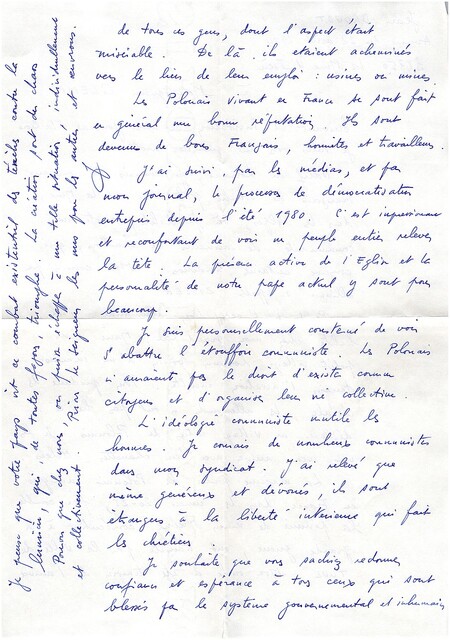 de tous ces gens, dont l'aspect était
misérable. De là ils étaient acheminés
vers le lieu de leur emploi : usines ou mines
Les Polonais vivant en France se sont fait
en général une bonne réputation. Ils sont
devenus de bons Français, honnêtes et travailleurs.
J'ai suivi par les médias, et par
mon journal, le processus de démocratisation
entrepris depuis l'été 1980. C'est impressionnant
et réconfortant de voir un peuple entier relever
la tête. La présence active de l'Eglise et la
personnalité de notre pape actuel y sont pour
beaucoup.
Je suis personnellement consterné de voir
s'abattre l'étouffoir communiste. Les Polonais
n'auraient pas le droit d'exister comme
citoyens et d'organiser leur vie collective.
L'idéologie communiste mutile les
hommes. Je connais de nombreux communistes
dans mon syndicat. J'ai relevé que
même généreux et dévoués, ils sont
étrangers à la liberté intérieure qui fait
les chrétiens.
Je souhaite que vous sachiez redonner
confiance et espérance à tous ceux qui sont
blessés par le système gouvernemental et inhumain
Je pense que votre pays vit ce combat existentiel des ténèbres contre la
lumière, qui, de toutes façons, triomphe. La création sort du chaos
Pourvu que chez vous, on puisse échapper à une telle situation, individuellement
et collectivement. Prions le Seigneur les uns pour les autres, et environs.